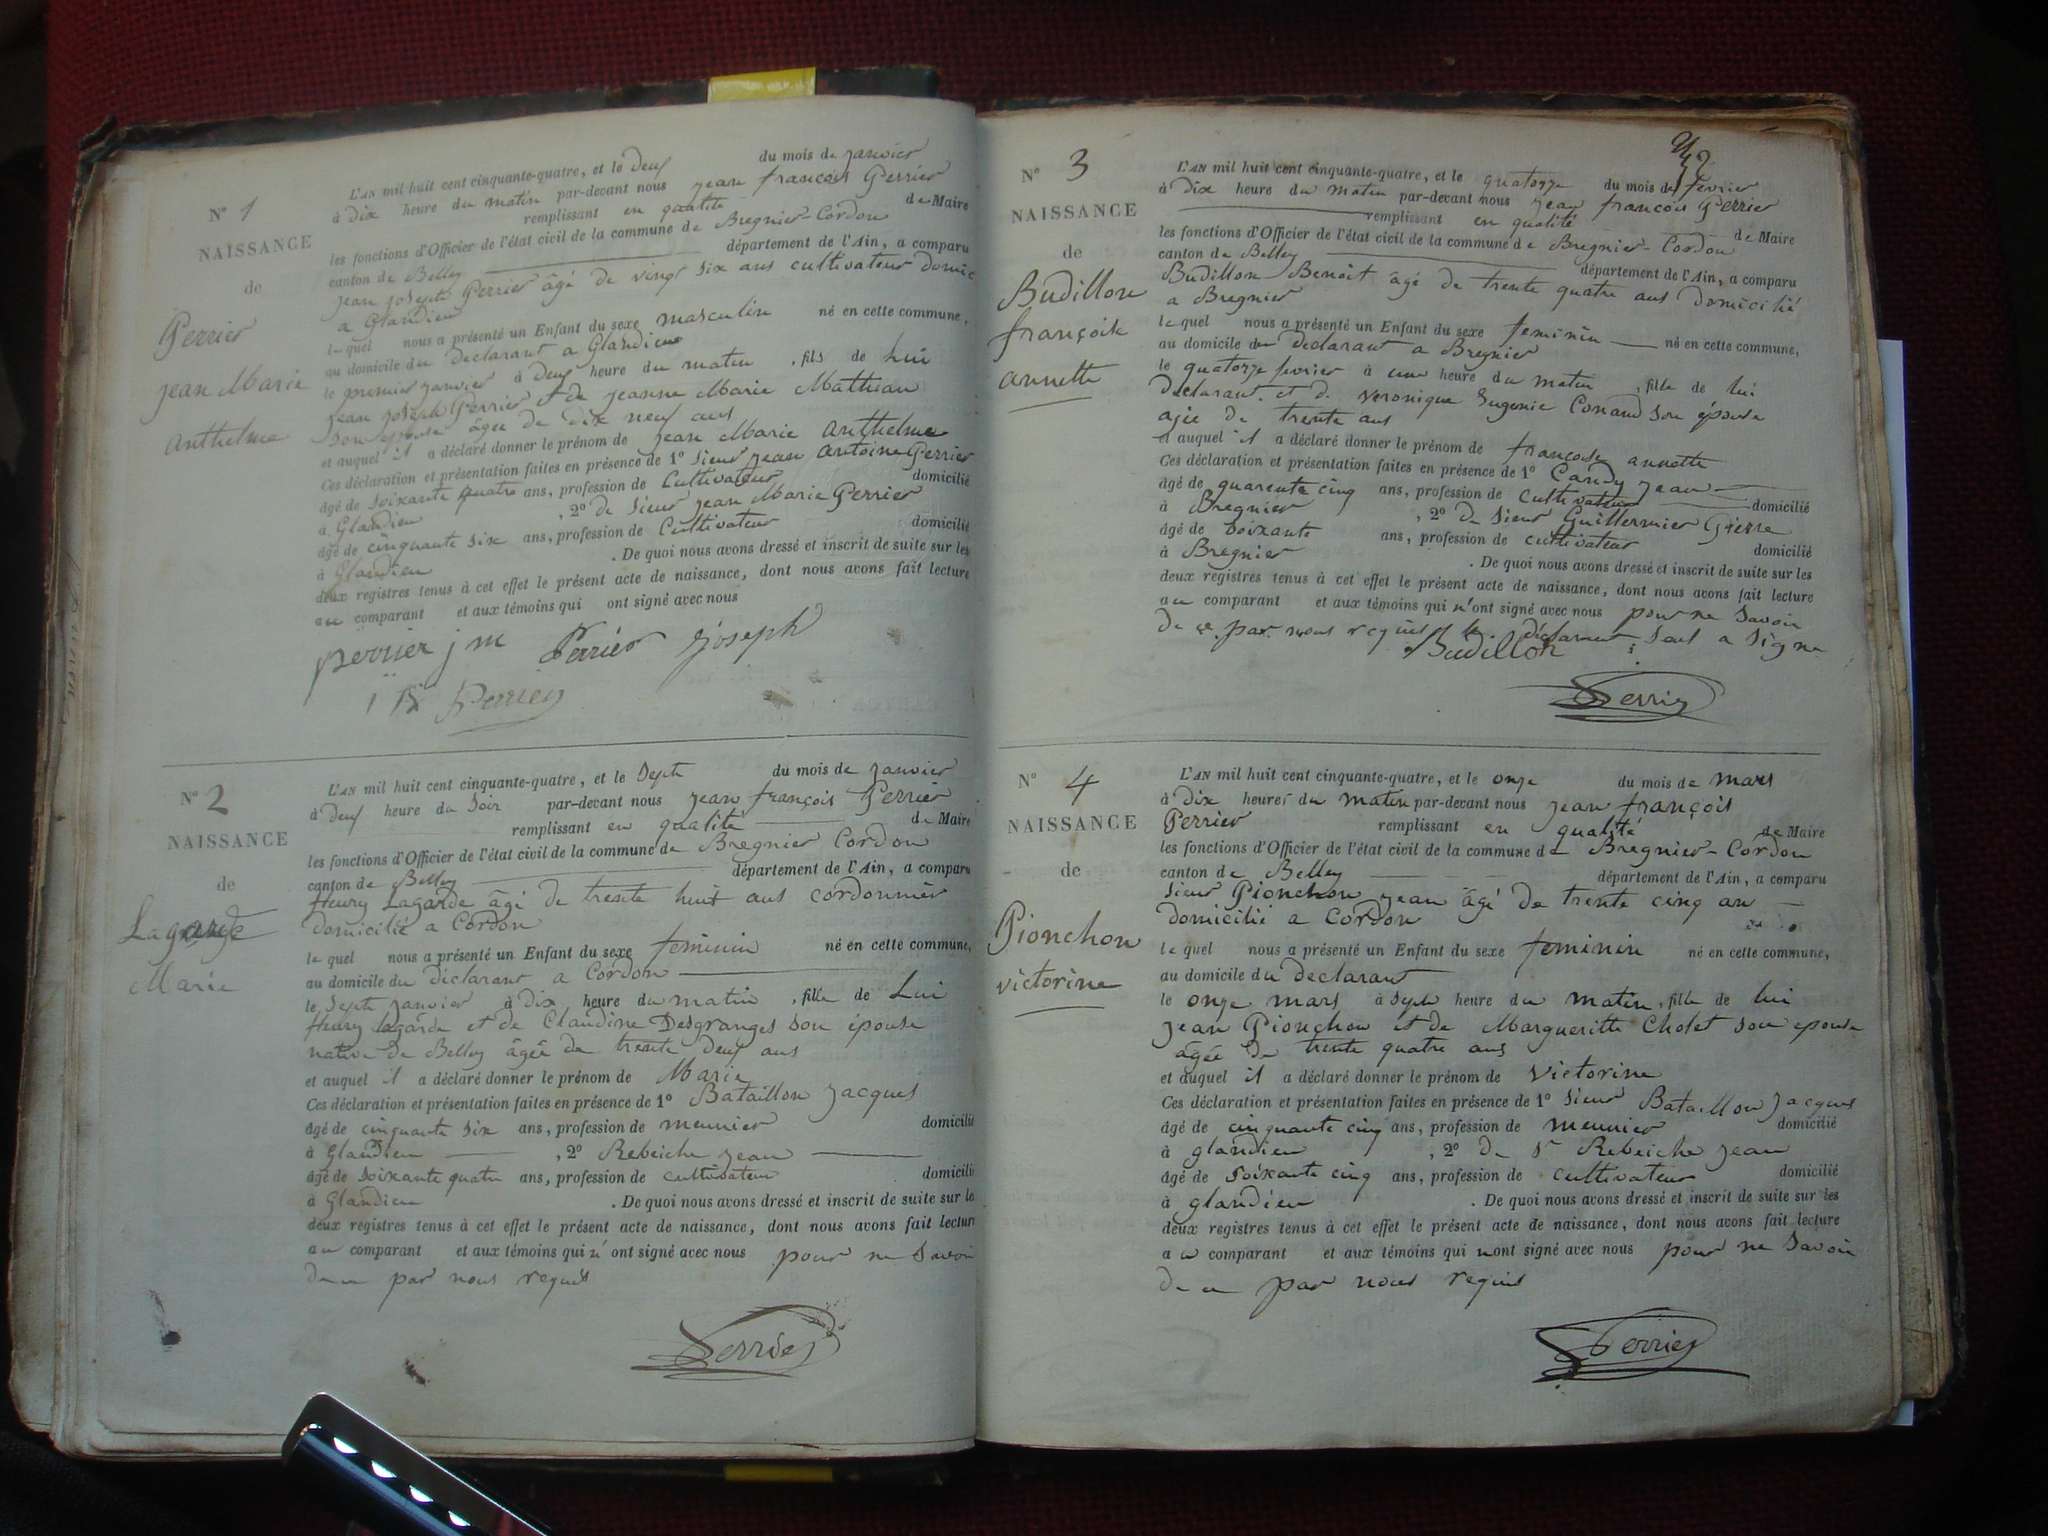 N° 1
NAISSANCE
de
Perrier
jean Marie
anthelme
L'AN mil huit cent cinquante-quatre, et le Deux du mois de janvier
à Dix heure du matin par-devant nous jean françois Perrier
remplissant en qualité de Maire
les fonctions d'Officier de l'état civil de la commune de Bregnier-Cordon
canton de Belley département de l'Ain, a comparu
jean joseph Perrier âgé de vingt six ans cultivateur domic
a Glandieu
le quel nous a présenté un Enfant du sexe masculin né en cette commune,
au domicile du Declarant a Glandieu
le premier janvier à Deux heure du matin, fils de Lui
jean joseph Perrier et de jeanne Marie Mathieu
son epouse âgée de Dix neuf ans
et auquel il a déclaré donner le prénom de jean Marie anthelme
Ces déclaration et présentation faites en présence de 1° Sieur jean antoine Perrier
âgé de soixante quatre ans, profession de Cultivateur domicilié
à Glandieu, 2° de Sieur jean Marie Perrier
âgé de cinquante six ans, profession de Cultivateur domicilié
à Glandieu. De quoi nous avons dressé et inscrit de suite sur les
deux registres tenus à cet effet le présent acte de naissance, dont nous avons fait lecture
au comparant et aux témoins qui ont signé avec nous
perrier j m Perrier joseph
Perrier
N° 2
NAISSANCE
de
Lagarde
Marie
L'AN mil huit cent cinquante-quatre, et le Sept du mois de janvier
à Deux heure du Soir par-devant nous jean françois Perrier
remplissant en qualité de Maire
les fonctions d'Officier de l'état civil de la commune de Bregnier Cordon
canton de Belley département de l'Ain, a comparu
fleury Lagarde âgé de trente huit ans cordonnier
Domicilié a Cordon
le quel nous a présenté un Enfant du sexe feminin né en cette commune,
au domicile du Déclarant a Cordon
le Sept janvier à Dix heure du matin, fille de Lui
fleury lagarde et de Claudine Desgranges son épouse
native de Belley âgée de trente Deux ans
et auquel il a déclaré donner le prénom de Marie
Ces déclaration et présentation faites en présence de 1° Bataillon jacques
âgé de cinquante six ans, profession de meunier domicilié
à Glandieu, 2° Rebeiche jean
âgé de soixante quatre ans, profession de cultivateur domicilié
à Glandieu. De quoi nous avons dressé et inscrit de suite sur le
deux registres tenus à cet effet le présent acte de naissance, dont nous avons fait lecture
au comparant et aux témoins qui n'ont signé avec nous pour ne Savoir
de ce par nous requis
Perrier
N° 3
NAISSANCE
de
Budillon
françoise
annette
L'AN mil huit cent cinquante-quatre, et le quatorze du mois de fevrier
à Dix heure du matin par-devant nous jean françois Perrier
remplissant en qualité de Maire
les fonctions d'Officier de l'état civil de la commune de Bregnier-Cordon
canton de Belley département de l'Ain, a comparu
Budillon Benoit âgé de trente quatre ans domicilié
a Bregnier
le quel nous a présenté un Enfant du sexe feminin né en cette commune,
au domicile du Declarant a Bregnier
le quatorze fevrier à une heure du matin, fille de lui
Déclarant et de veronique Eugenie Conand son épouse
agée de trente ans
et auquel il a déclaré donner le prénom de françoise annette
Ces déclaration et présentation faites en présence de 1° Candy jean
âgé de quarente cinq ans, profession de cultivateur domicilié
à Bregnier, 2° de Sieur Guillermier Pierre
âgé de soixante ans, profession de cultivateur domicilié
à Bregnier. De quoi nous avons dressé et inscrit de suite sur les
deux registres tenus à cet effet le présent acte de naissance, dont nous avons fait lecture
au comparant et aux témoins qui n'ont signé avec nous pour ne Savoir
de ce par nous requis le déclarant Seul a Signé
Budillon
Perrier
N° 4
NAISSANCE
de
Pionchon
victorine
L'AN mil huit cent cinquante-quatre, et le onze du mois de mars
à Dix heures du matin par-devant nous jean françois
Perrier remplissant en qualité de Maire
les fonctions d'Officier de l'état civil de la commune de Bregnier-Cordon
canton de Belley département de l'Ain, a comparu
Sieur Pionchon jean âgé de trente cinq an
domicilié a Cordon
le quel nous a présenté un Enfant du sexe feminin né en cette commune,
au domicile du Declarant
le onze mars à Sept heure du matin, fille de lui
jean Pionchon et de Margueritte Cholet son epouse
âgée de trente quatre ans
et auquel il a déclaré donner le prénom de victorine
Ces déclaration et présentation faites en présence de 1° Sieur Bataillon jacques
âgé de cinquante cinq ans, profession de meunier domicilié
à glandieu, 2° de Sr Rebeiche jean
âgé de soixante cinq ans, profession de cultivateur domicilié
à glandieu. De quoi nous avons dressé et inscrit de suite sur les
deux registres tenus à cet effet le présent acte de naissance, dont nous avons fait lecture
au comparant et aux témoins qui nont signé avec nous pour ne Savoir
de ce par nous requis
Perrier